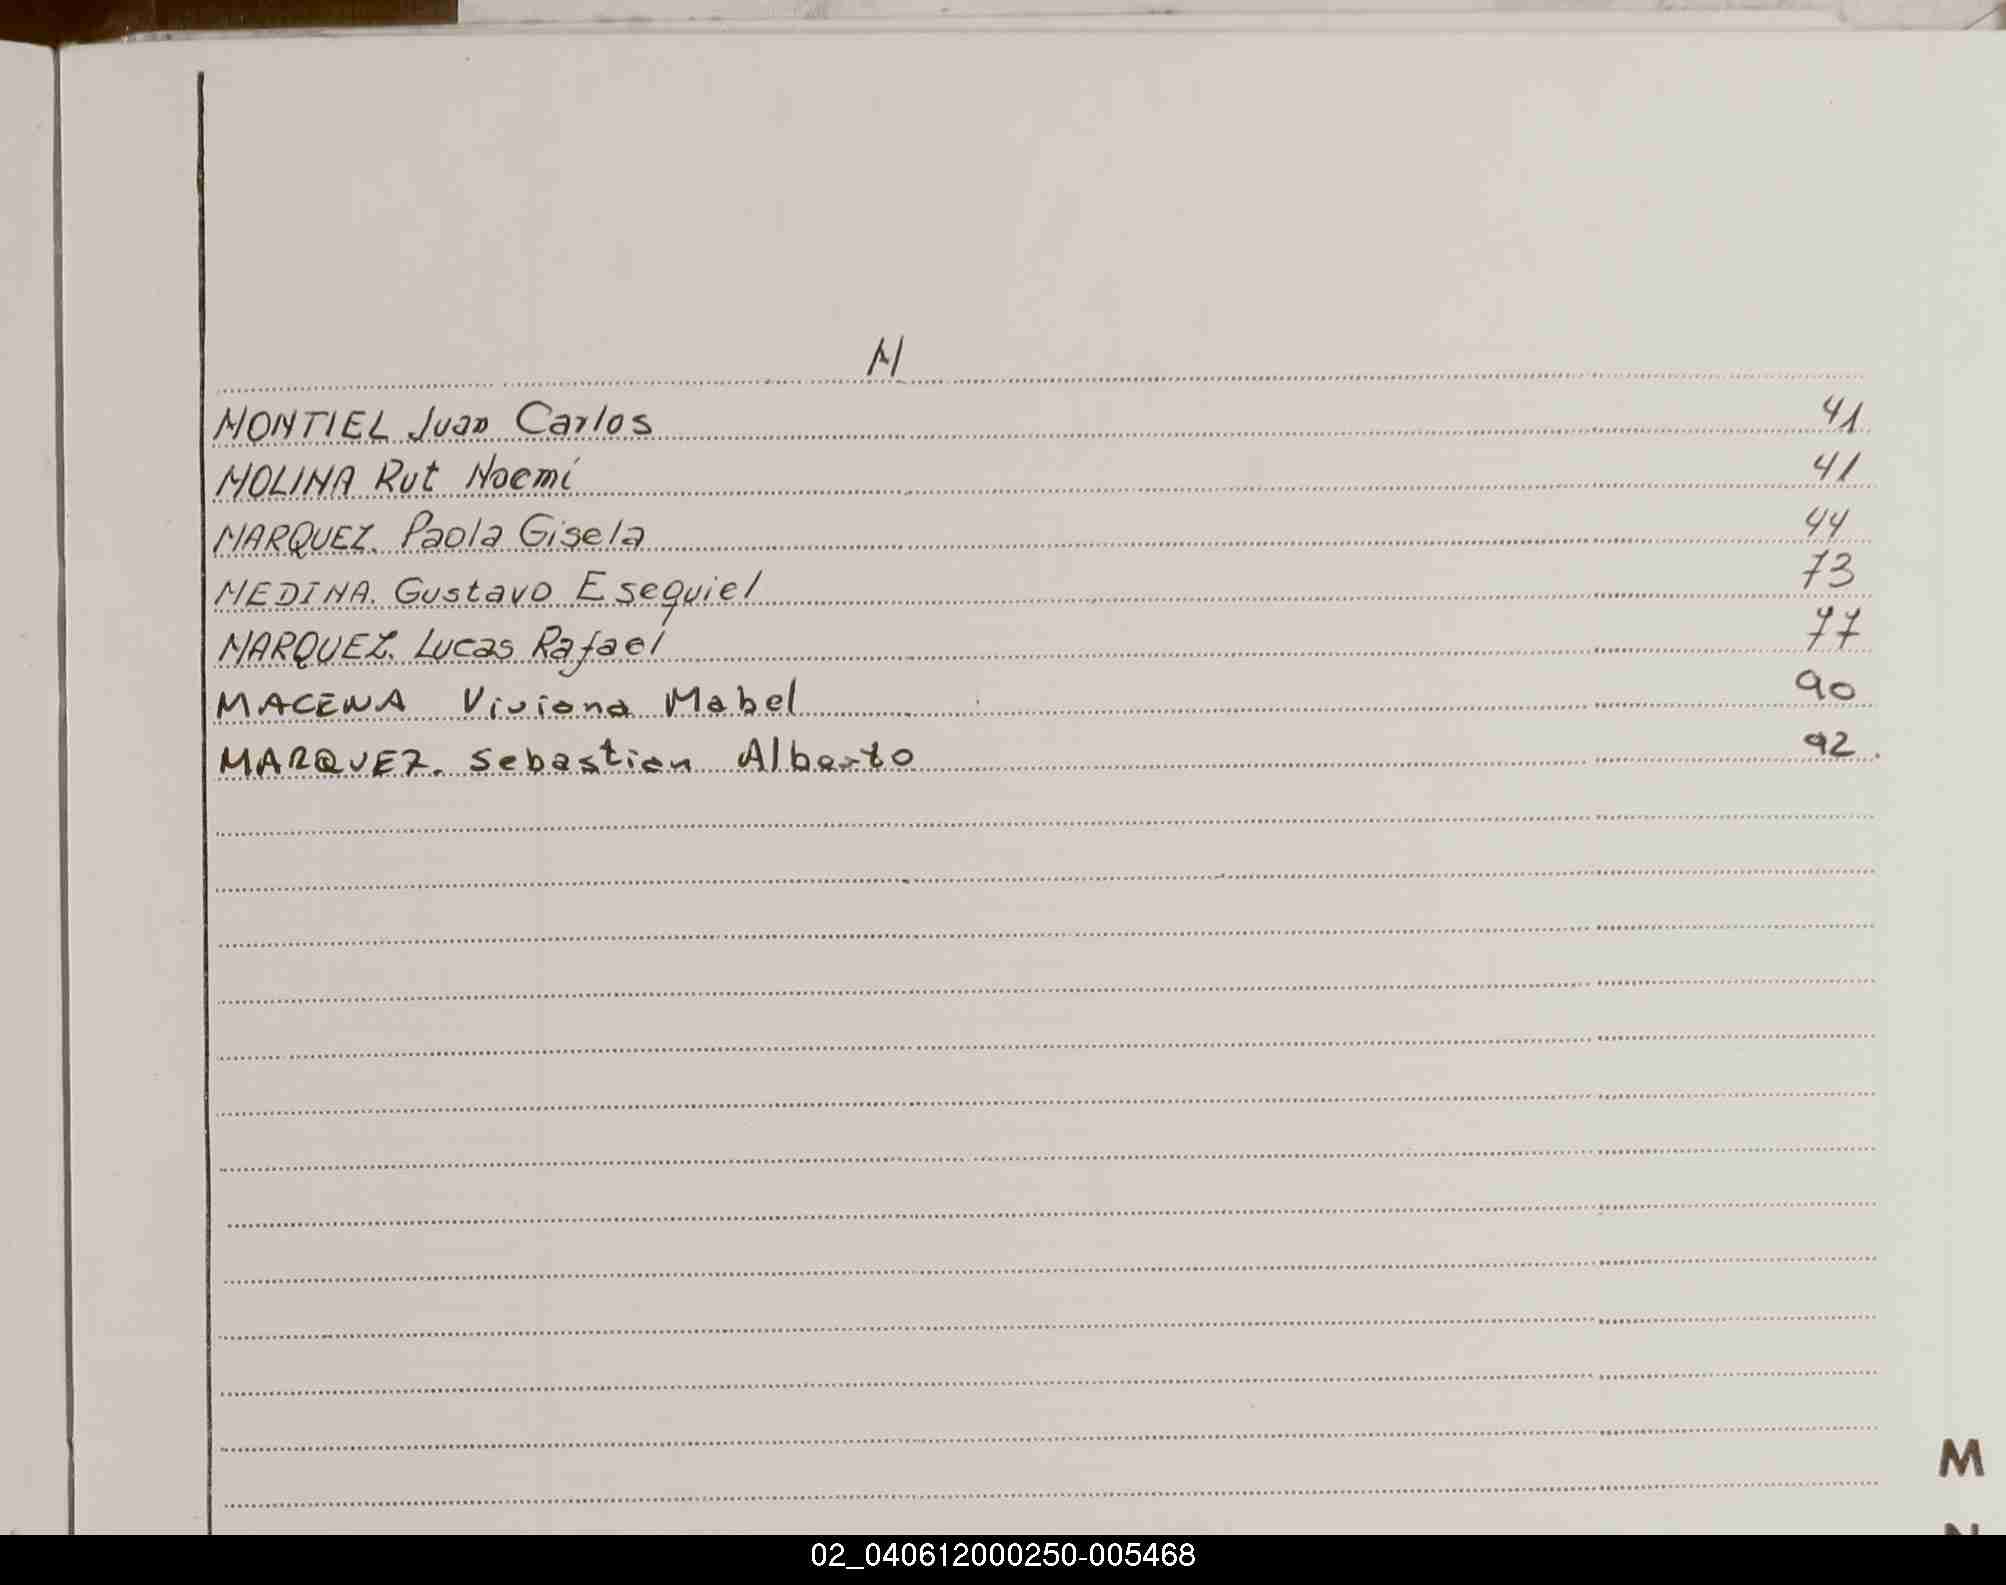 M
MONTIEL Juan Carlos 41
MOLINA Rut Noemí 41
MARQUEZ. Paola Gisela 44
MEDINA. Gustavo Esequiel 73
MARQUEZ. Lucas Rafael 77
MACENA Viviana Mabel 90
MARQUEZ. Sebastian Alberto 92.
M
N
02_040612000250-005468